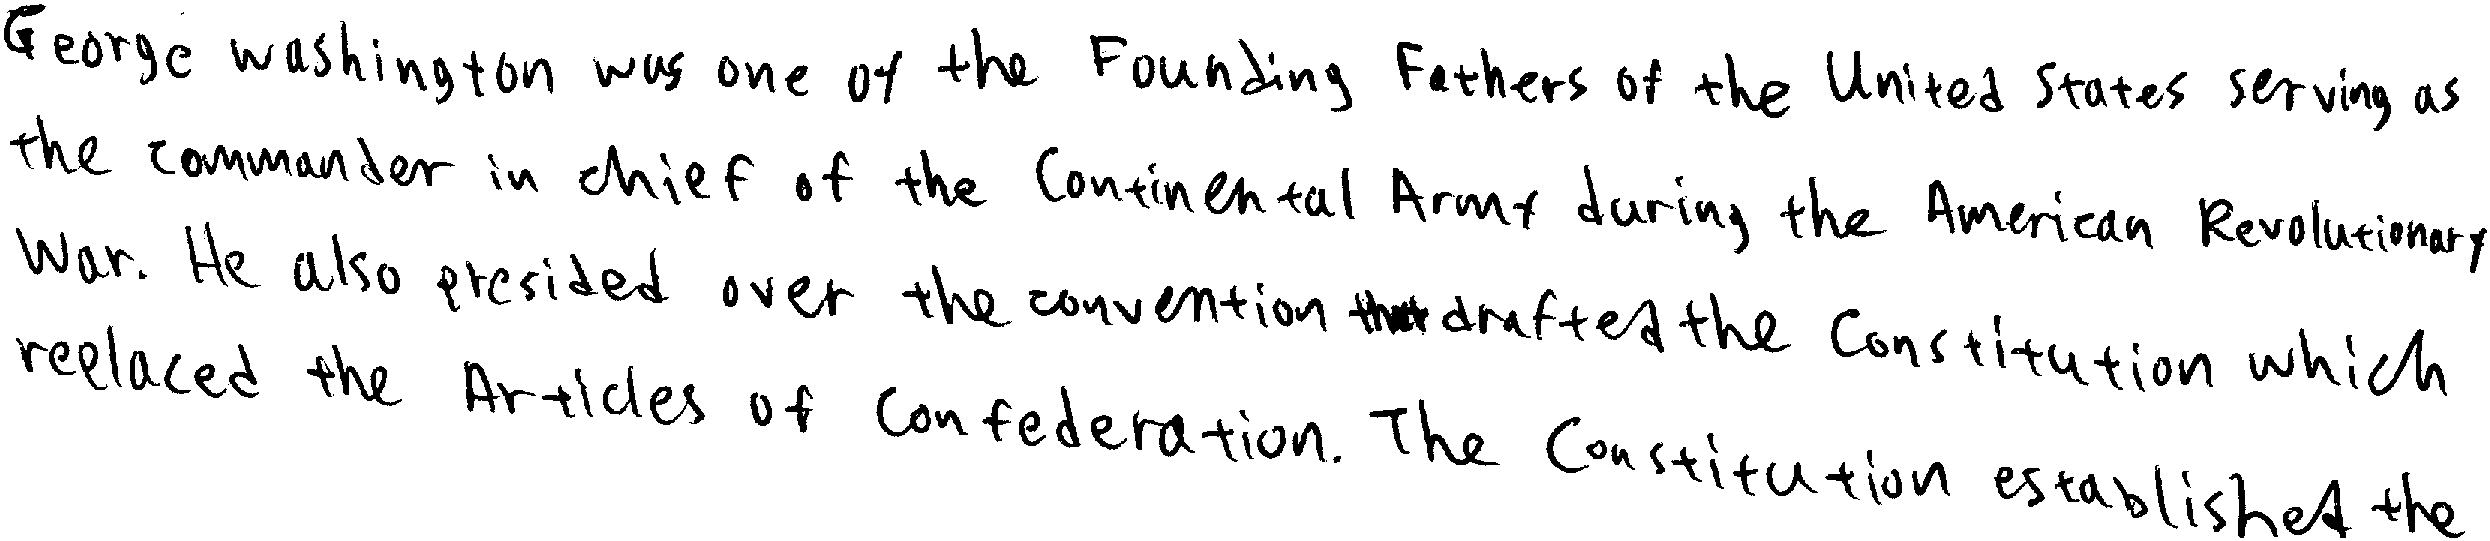 George washington was one of the Founding Fathers of the United States serving as
the commander in chief of the Continental Army during the American Revolutionary
War. He also presided over the convention that drafted the Constitution which
replaced the Articles of Confederation. The Constitution established the